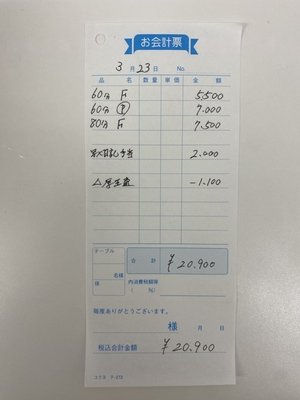 お会計票
3月23日 No.
品名 数量 単価 金額
60分 F 5,500
60分 Ⓟ 7,000
80分 F 7,500
2,000
△厚生費 -1,100
テーブル
名様
合計 ¥20,900
係
内消費税額等
( %)
毎度ありがとうございます。
様 月 日
税込合計金額 ¥20,900